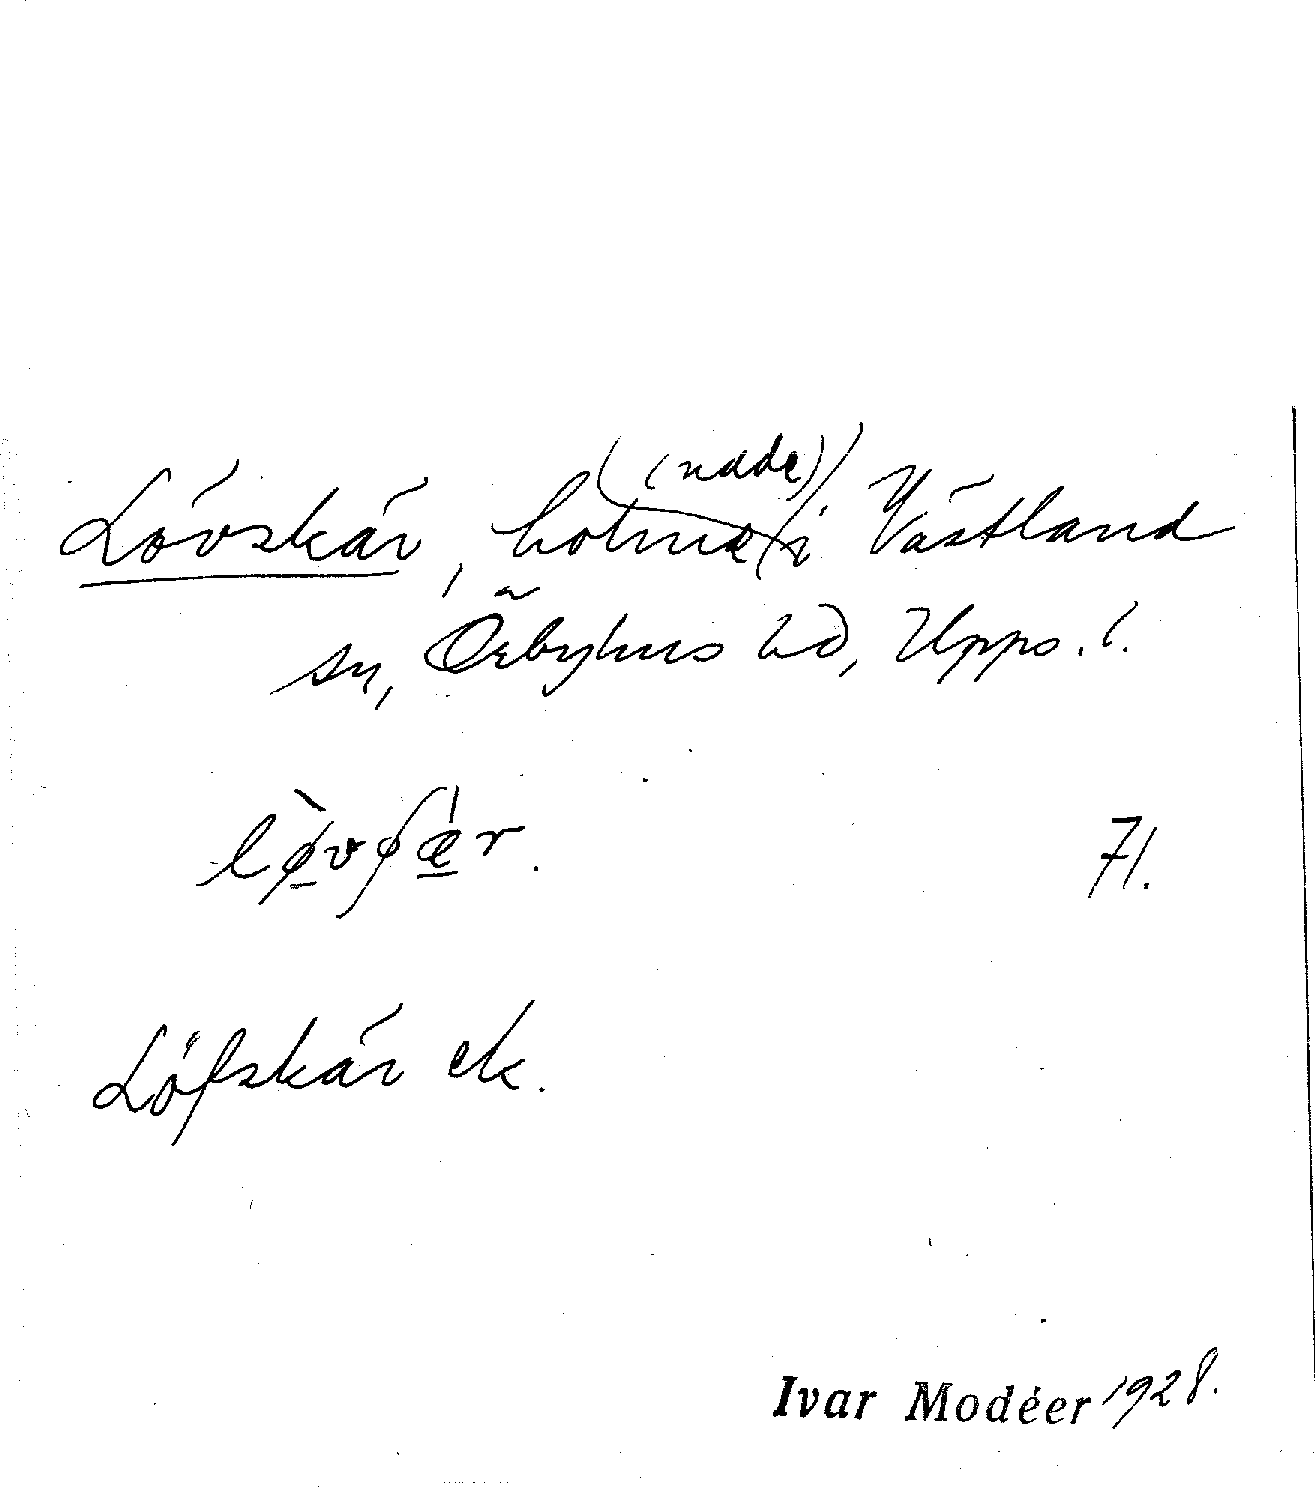 Lövskär, holme (udde) i Västland
sn, Örbyhus hd, Upps. l.
lø̀vʃæ̀r. 71.
Löfskär ek.
Ivar Modéer 1928.